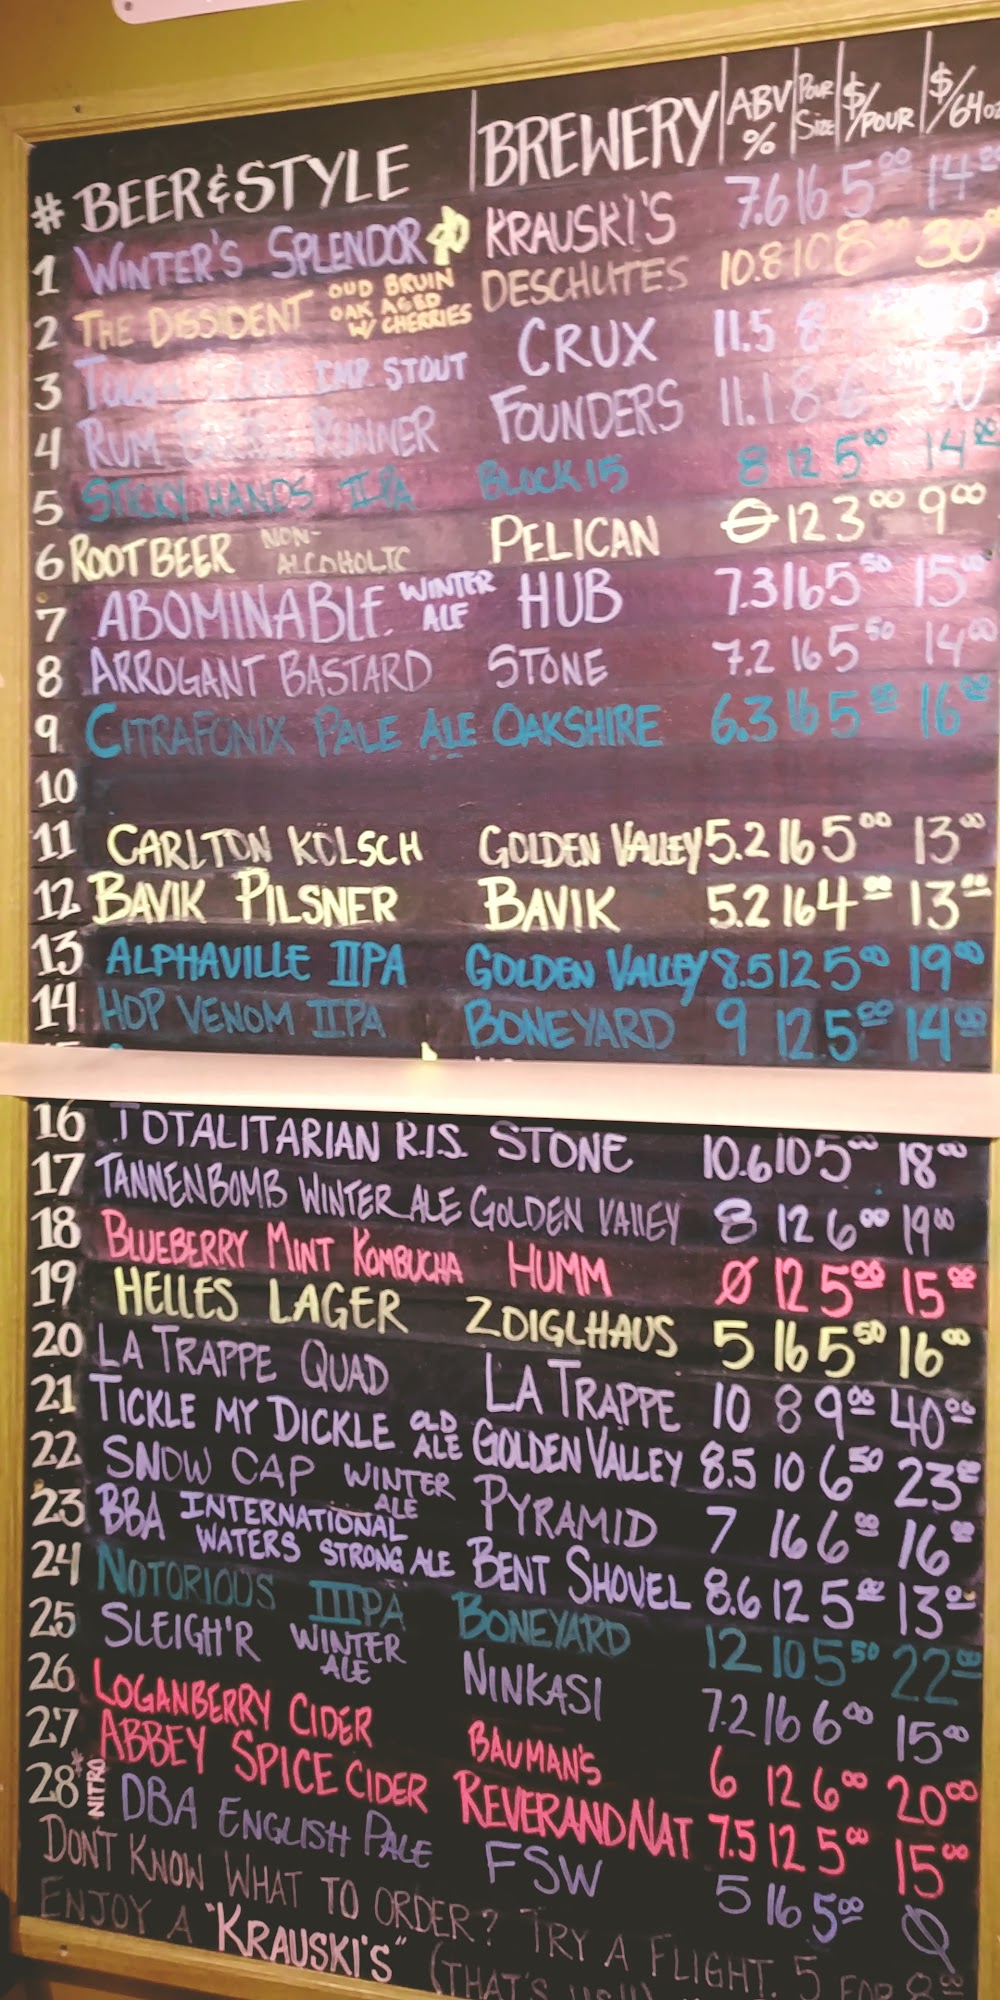 # BEER & STYLE BREWERY ABV % POUR SIZE $/POUR $/64oz
1 WINTER'S SPLENDOR KRAUSKI'S 7.6 16 5.00 14.00
2 THE DISSIDENT OUD BRUIN OAK AGED W/ CHERRIES DESCHUTES 10.8 10 8 30
3 IMP STOUT CRUX 11.5 8
4 RUM RUNNER FOUNDERS 11.1 8 6
5 STICKY HANDS IIPA BLOCK 15 8 12 5.00 14.00
6 ROOT BEER NON-ALCOHOLIC PELICAN Ø 12 3.00 9.00
7 ABOMINABLE WINTER ALE HUB 7.3 16 5.50 15.00
8 ARROGANT BASTARD STONE 7.2 16 5.50 14.00
9 CITRAFONIX PALE ALE OAKSHIRE 6.3 16 5.50 16.00
10
11 CARLTON KÖLSCH GOLDEN VALLEY 5.2 16 5.00 13.00
12 BAVIK PILSNER BAVIK 5.2 16 4.00 13.00
13 ALPHAVILLE IIPA GOLDEN VALLEY 8.5 12 5.00 19.00
14 HOP VENOM IIPA BONEYARD 9 12 5.00 14.00
16 TOTALITARIAN R.I.S. STONE 10.6 10 5.00 18.00
17 TANNENBOMB WINTER ALE GOLDEN VALLEY 8 12 6.00 19.00
18 BLUEBERRY MINT KOMBUCHA HUMM Ø 12 5.00 15.00
19 HELLES LAGER ZOIGLHAUS 5 16 5.50 16.00
20 LA TRAPPE QUAD LA TRAPPE 10 8 9.00 40.00
21 TICKLE MY DICKLE OLD ALE GOLDEN VALLEY 8.5 10 6.50 23.00
22 SNOW CAP WINTER ALE PYRAMID 7 16 6.00 16.00
23 BBA INTERNATIONAL WATERS STRONG ALE BENT SHOVEL 8.6 12 5.00 13.00
24 NOTORIOUS IIIPA BONEYARD 12 10 5.50 22.00
25 SLEIGH'R WINTER ALE NINKASI 7.2 16 6.00 15.00
26 LOGANBERRY CIDER BAUMAN'S 6 12 6.00 20.00
27 ABBEY SPICE CIDER REVERAND NAT 7.5 12 5.00 15.00
28* NITRO DBA ENGLISH PALE FSW 5 16 5.00 Ø
DON'T KNOW WHAT TO ORDER? TRY A FLIGHT. 5 FOR 8.00
ENJOY A "KRAUSKI'S" (THAT'S US!!)